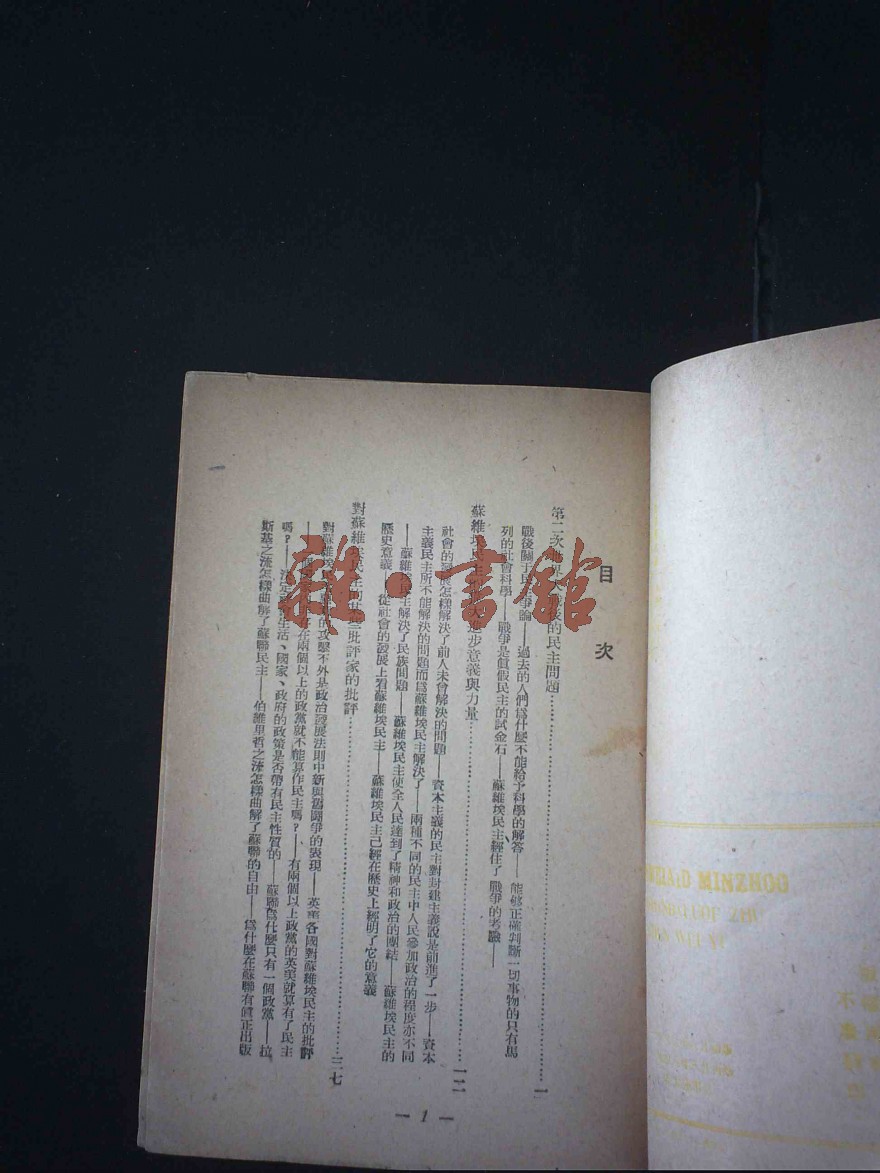 目次
第二次 的民主問題 一
戰後關于民 爭論——過去的人們爲什麼不能給予科學的解答——能够正確判斷一切事物的只有馬
列的社會科學——戰爭是眞假民主的試金石——蘇維埃民主經住了戰爭的考驗——
蘇維埃民主 進步意義與力量 一二
社會的發展怎樣解決了前人未會解決的問題——資本主義的民主對封建主義說是前進了一步——資本
主義民主所不能解決的問題而爲蘇維埃民主解決了——兩種不同的民主中人民參加政治的程度亦不同
——蘇維埃民主解決了民族問題——蘇維埃民主使全人民達到了精神和政治的團結——蘇維埃民主的
歷史意義——從社會的發展上看蘇維埃民主——蘇維埃民主已經在歷史上經明了它的意義
對蘇維埃民主的某些批評家的批評 三七
對蘇維埃 的攻擊不外是政治發展法則中新與舊鬪爭的表現——英 各國對蘇維埃民主的批評
—— 在兩個以上的政黨就不能算作民主嗎?——有兩個以上政黨的英美就算有了民主
嗎?—— 生活、國家、政府的政策是否帶有民主性質的——蘇聯爲什麼只有一個政黨——拉
斯基之流怎樣曲解了蘇聯民主——伯維里哲之流怎樣曲解了蘇聯的自由——爲什麼在蘇聯有眞正出版
— 1 —
雜·書館
MINZHOO